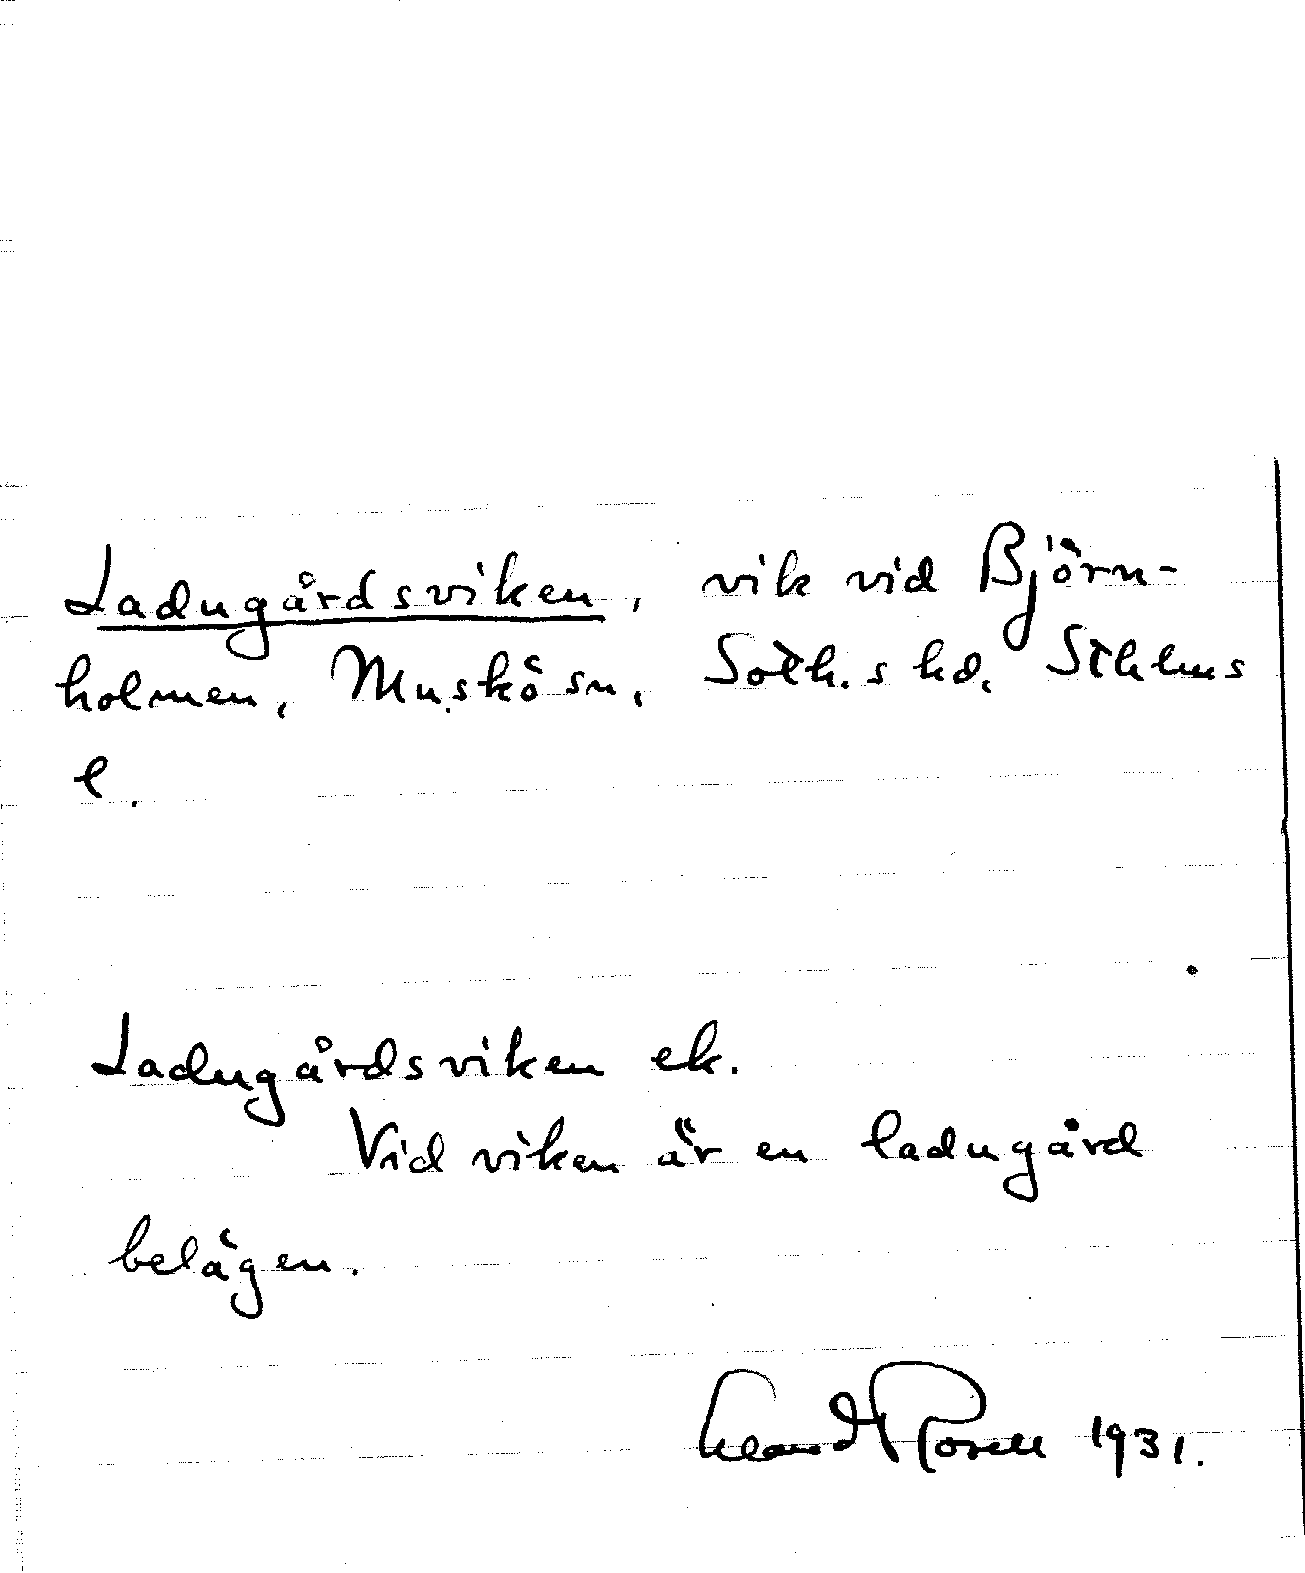 Ladugårdsviken, vik vid Björn-
holmen, Muskö sn, Soth.s hd. Sthlms
l.
Ladugårdsviken ek.
Vid viken är en ladugård
belägen.
Rosell 1931.